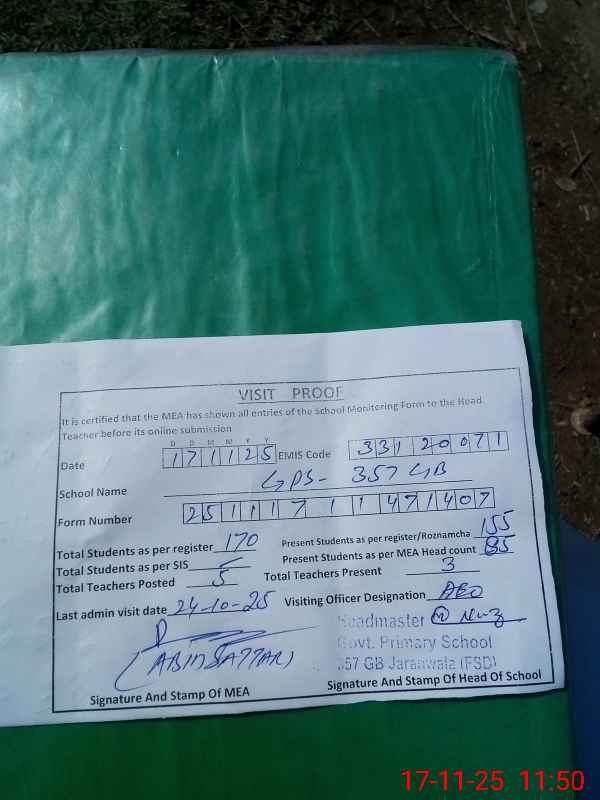 VISIT PROOF
It is certified that the MEA has shown all entries of the School Monitoring Form to the Head Teacher before its online submission
D D M M Y Y
Date 171125 EMIS Code 33120071
School Name GPS- 357 GB
Form Number 25111711471407
Total Students as per register 170 Present Students as per register/Roznamcha 155
Total Students as per SIS Present Students as per MEA Head count 85
Total Teachers Posted 5 Total Teachers Present 3
Last admin visit date 24-10-25 Visiting Officer Designation AEO
(ABID SATTAR)
Headmaster
Govt. Primary School
357 GB Jaranwala (FSD)
Signature And Stamp Of MEA Signature And Stamp Of Head Of School
17-11-25 11:50